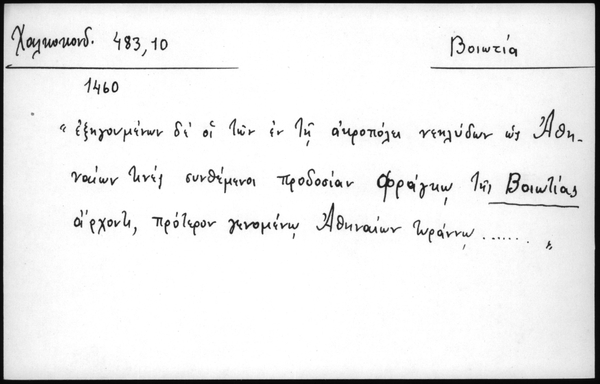 Χαλκοκονδ. 483,10
Βοιωτία
1460
"ἐξηγουμένων δέ οἱ τῶν ἐν τῇ ἀκροπόλει νεηλύδων ὡς Ἀθη-
ναίων τινές συνθέμενοι προδοσίαν Φράγκῳ τῆς Βοιωτίας
ἄρχοντι, πρότερον γενομένῳ Ἀθηναίων τυράννῳ ....... "